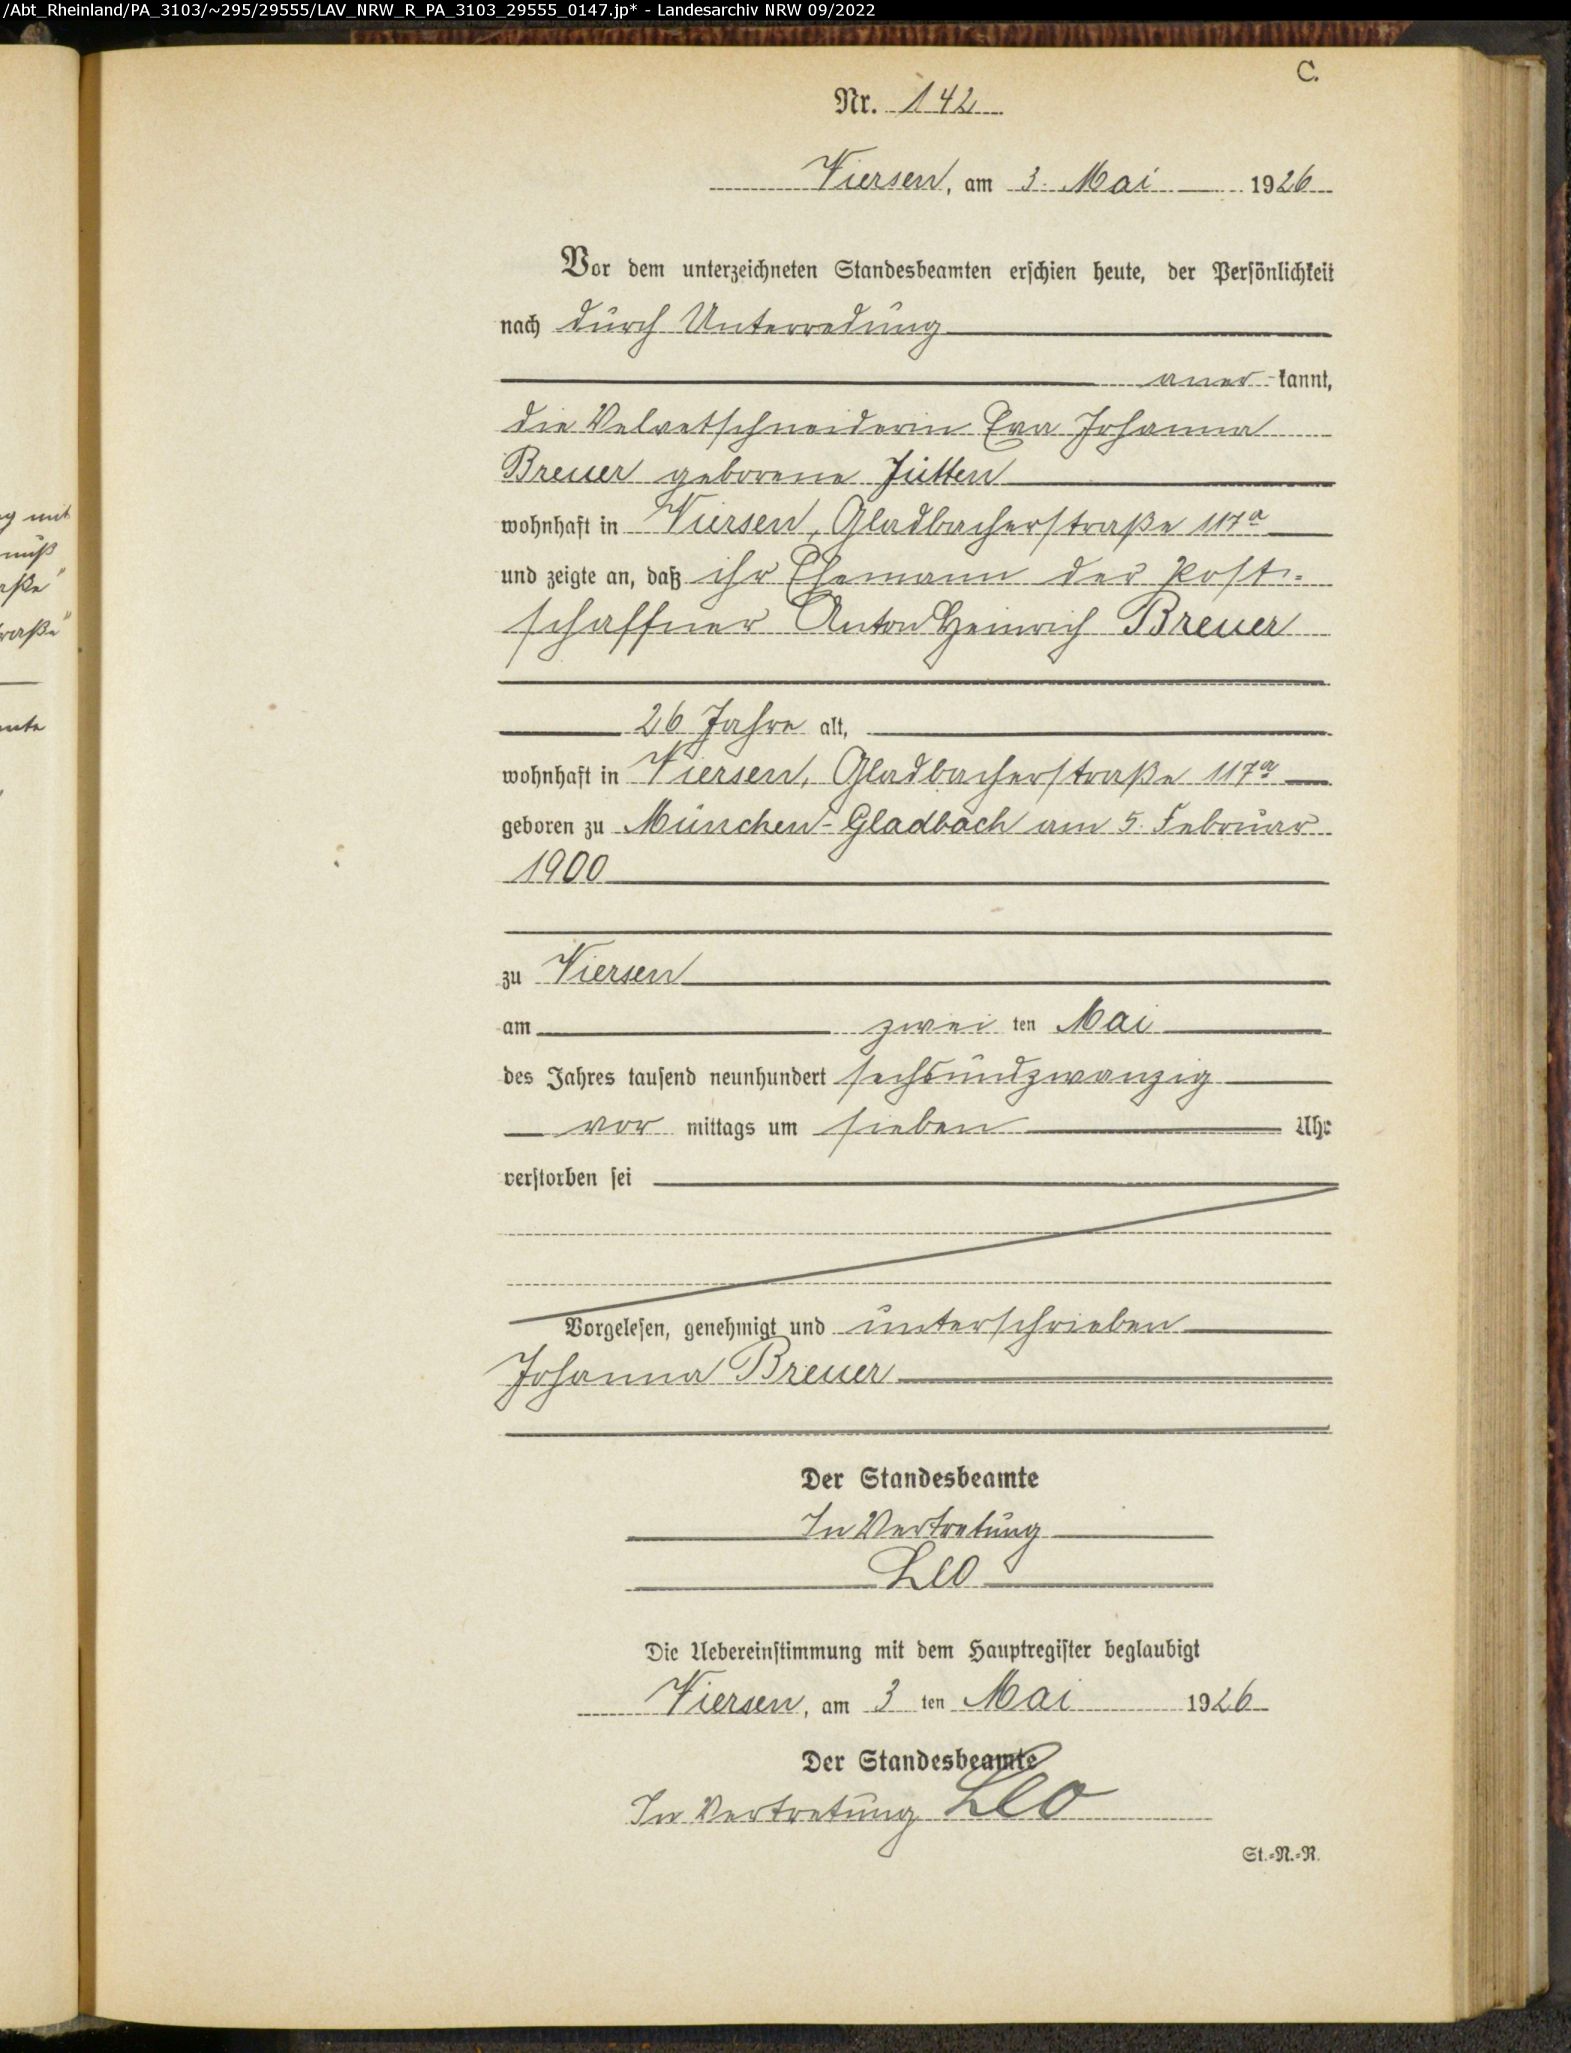 /Abt_Rheinland/PA_3103/~295/29555/LAV_NRW_R_PA_3103_29555_0147.jp* - Landesarchiv NRW 09/2022
C.
Nr. 142
Viersen, am 3. Mai 1926
Vor dem unterzeichneten Standesbeamten erschien heute, der Persönlichkeit
nach durch Unterredung
aner-kannt,
die Velvetschneiderin Eva Johanna
Breuer geborene Jütten
wohnhaft in Viersen, Gladbacherstraße 117a
und zeigte an, daß ihr Ehemann der Post-
schaffner Anton Heinrich Breuer
26 Jahre alt,
wohnhaft in Viersen, Gladbacherstraße 117a
geboren zu München-Gladbach am 5. Februar
1900
zu Viersen
am zwei ten Mai
des Jahres tausend neunhundert sechsundzwanzig
vor mittags um sieben Uhr
verstorben sei
Vorgelesen, genehmigt und unterschrieben
Johanna Breuer
Der Standesbeamte
In Vertretung
Leo
Die Uebereinstimmung mit dem Hauptregister beglaubigt
Viersen, am 3 ten Mai 1926
Der Standesbeamte
In Vertretung Leo
St.-N.-R.